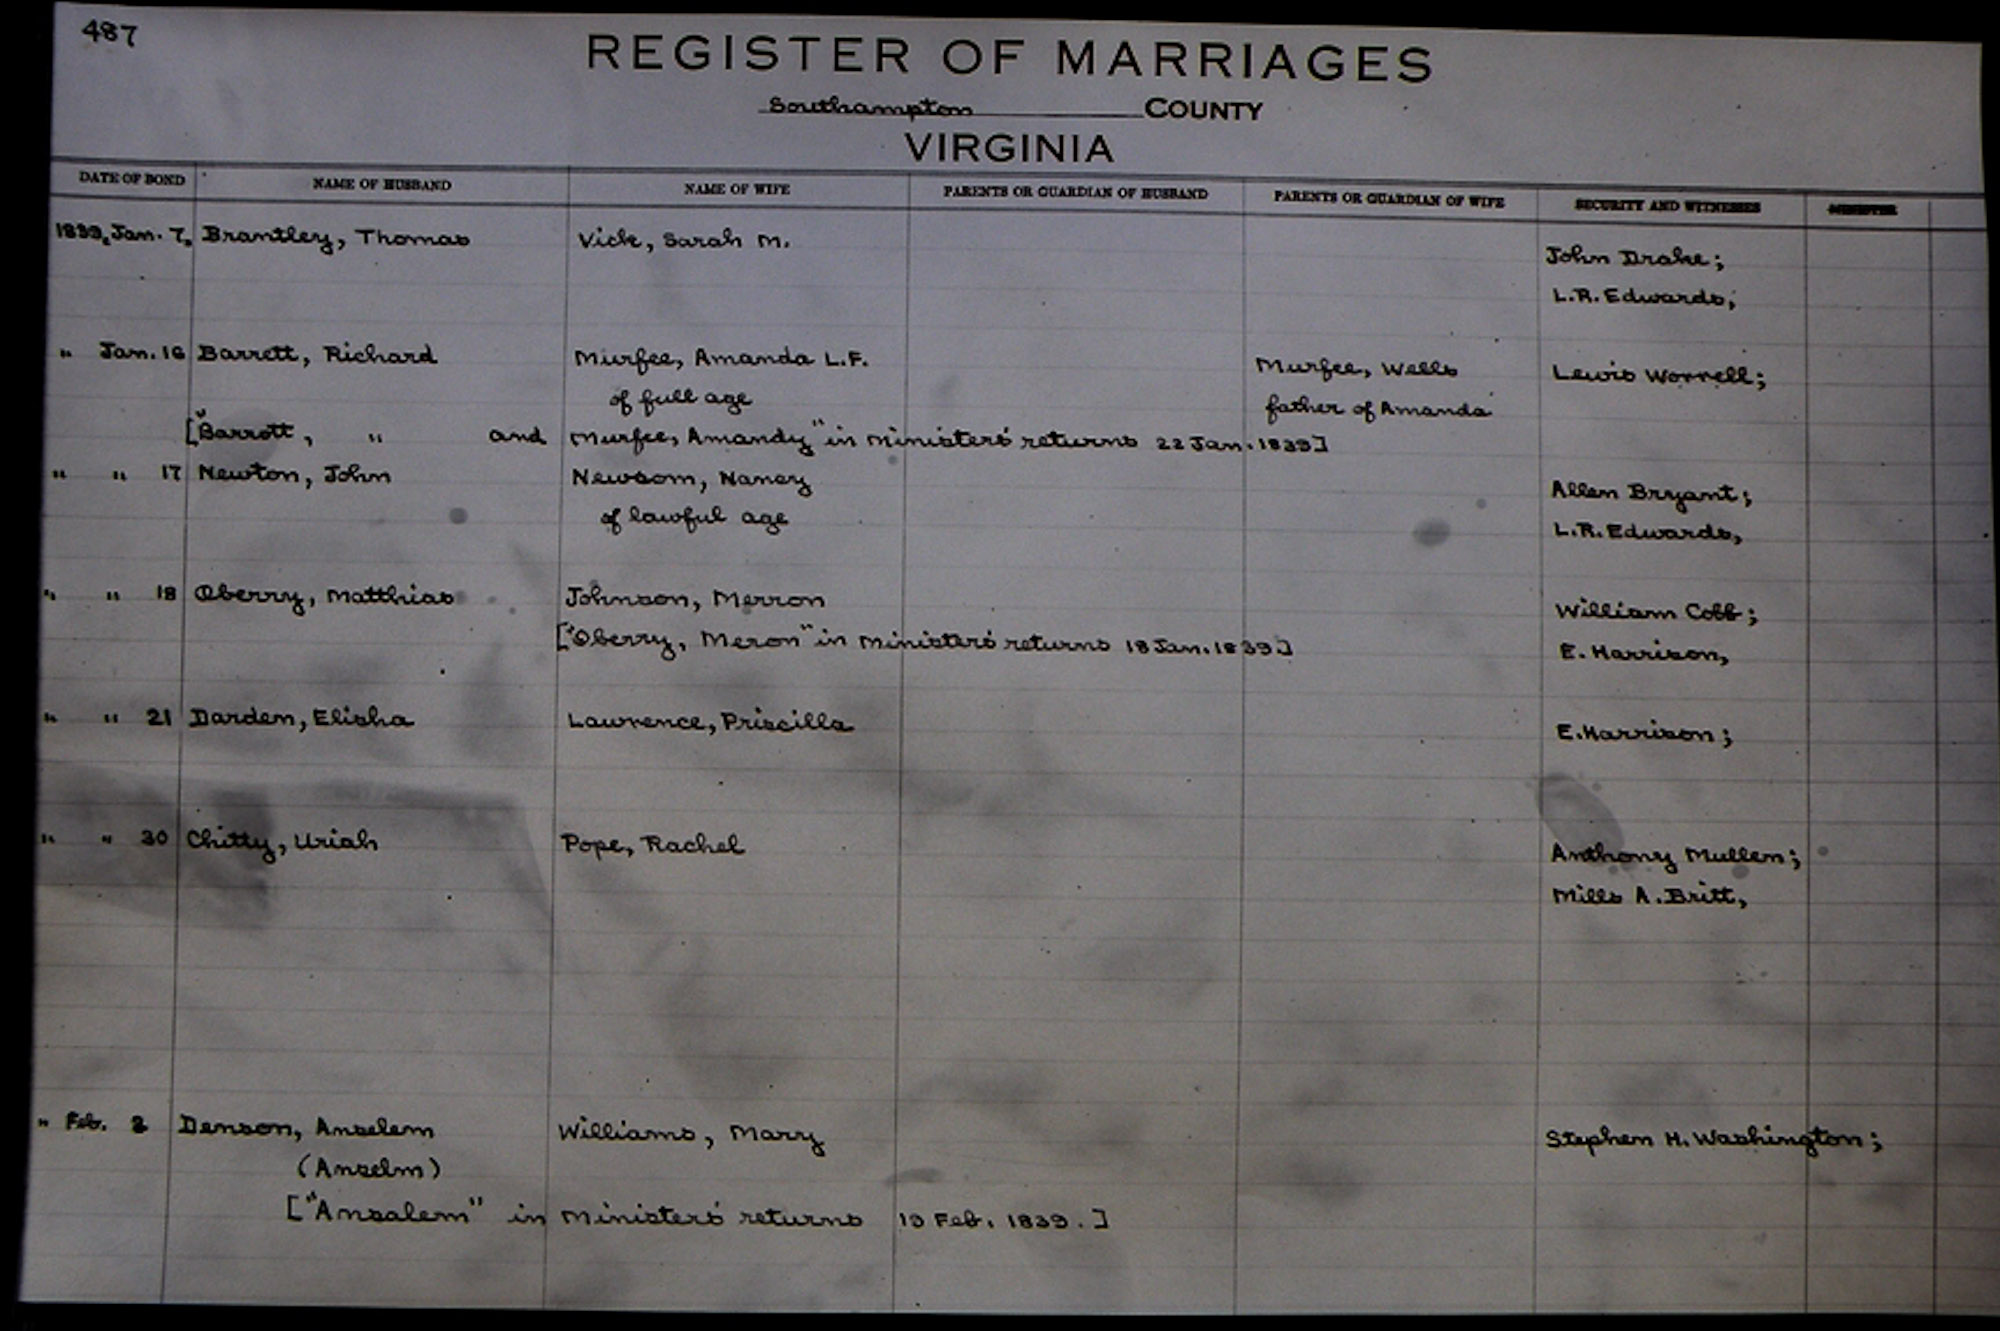 487
REGISTER OF MARRIAGES
Southampton COUNTY
VIRGINIA
DATE OF BOND NAME OF HUSBAND NAME OF WIFE PARENTS OR GUARDIAN OF HUSBAND PARENTS OR GUARDIAN OF WIFE SECURITY AND WITNESSES MINISTER
1839, Jan. 7, Brantley, Thomas Vick, Sarah M.
John Drake;
L.R. Edwards,
" Jan. 16 Barrett, Richard Murfee, Amanda L.F. Murfee, Wells Lewis Worrell;
of full age father of Amanda
["Barrott, " and Murfee, Amandy" in ministers' returns 22 Jan. 1839]
" " 17 Newton, John Newsom, Nancy Allen Bryant;
of lawful age L.R. Edwards,
" " 18 Oberry, Matthias Johnson, Merron William Cobb;
["Oberry, Meron" in ministers' returns 18 Jan. 1839] E. Harrison,
" " 21 Darden, Elisha Lawrence, Priscilla E. Harrison;
" " 30 Chitty, Uriah Pope, Rachel Anthony Mullen;
Mills A. Britt,
" Feb. 2 Denson, Anselem Williams, Mary Stephen H. Washington;
(Anselm)
["Ansalem" in ministers' returns 19 Feb. 1839.]